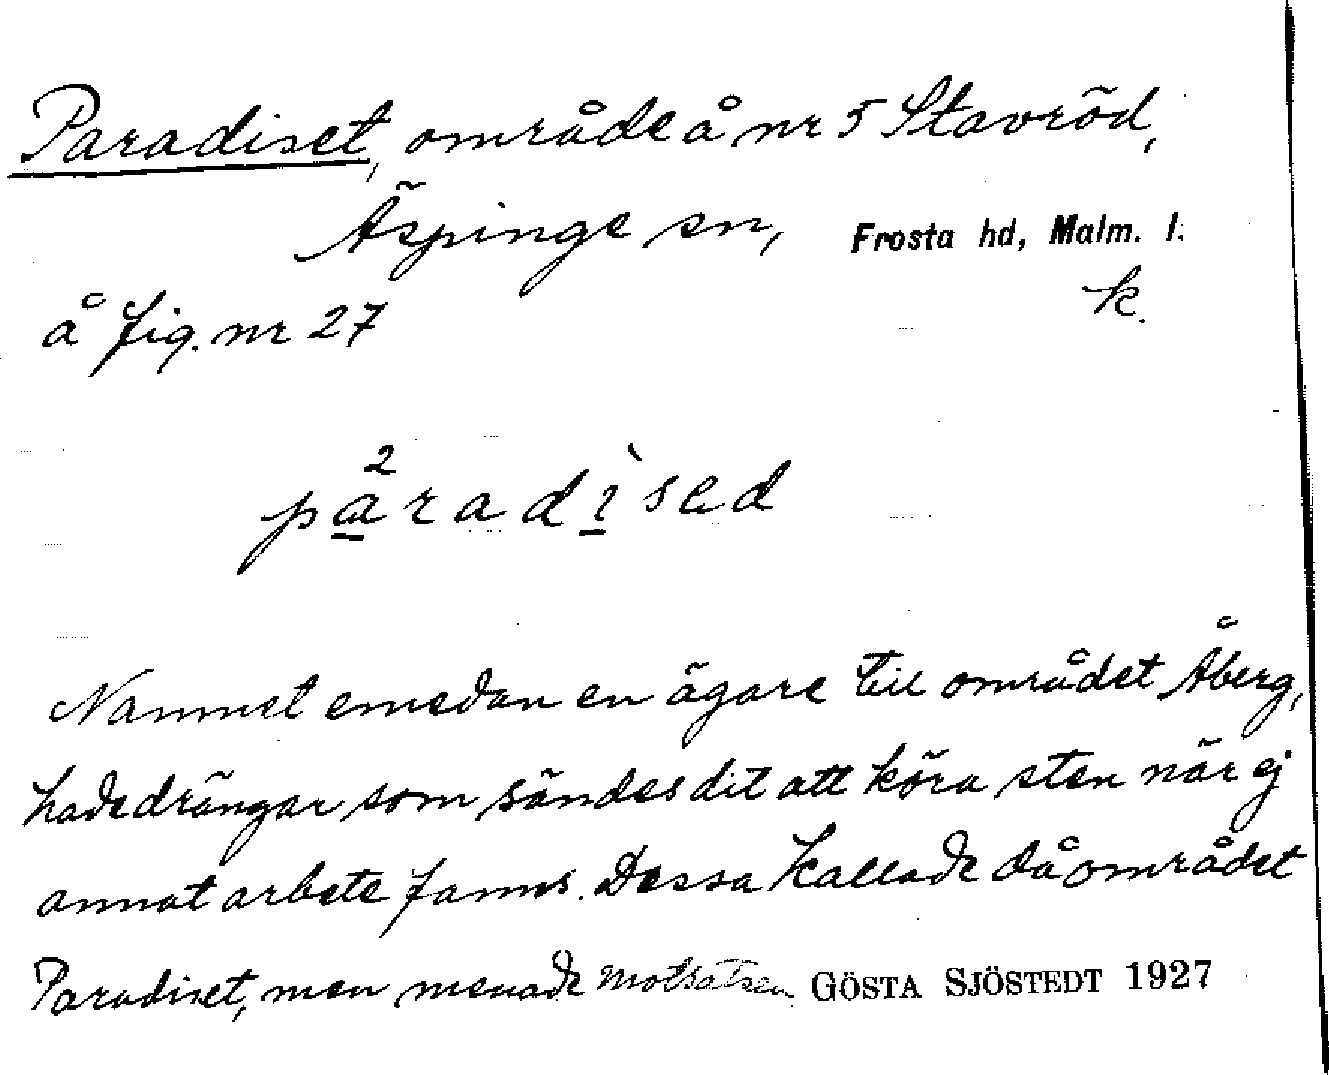 Paradiset, område å nr 5 Stavröd,
Äspinge sn, Frosta hd, Malm. l.
å fig. nr 27 k.
2
paradìsed
Namnet emedan en ägare till området Åberg,
hade drängar som sändes dit att köra sten när ej
annat arbete fanns. Dessa kallade då området
Paradiset, men menade motsatsen GÖSTA SJÖSTEDT 1927